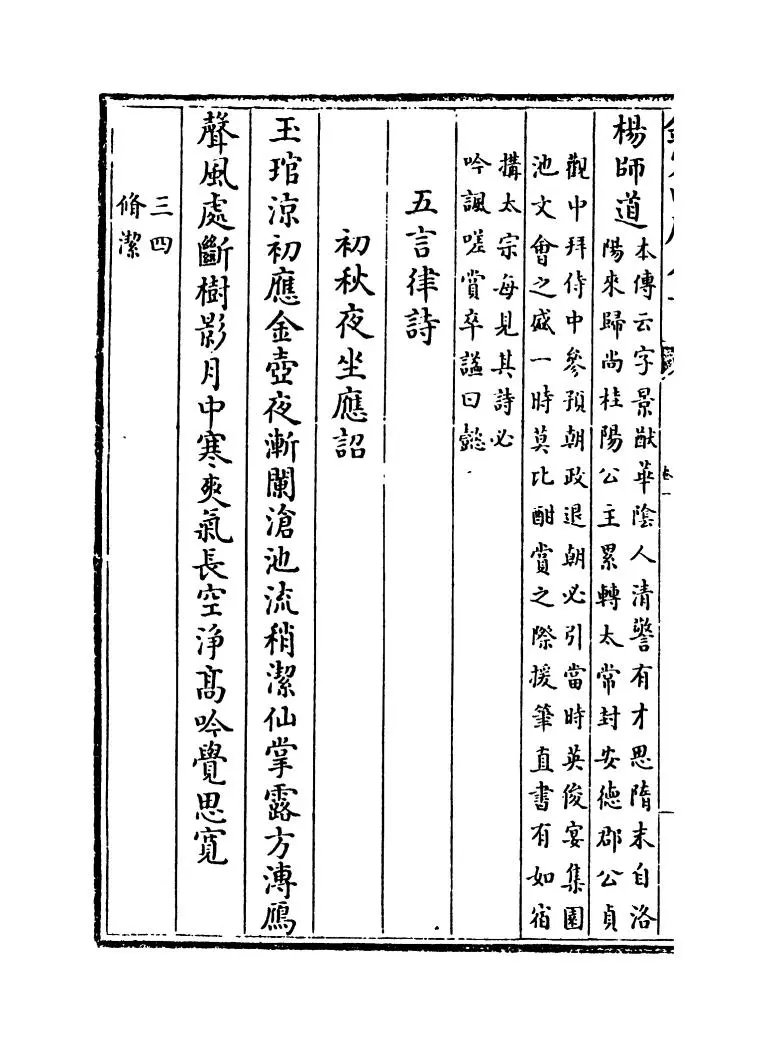 楊師道
本傳云字景猷華陰人清警有才思隋末自洛
陽來歸尚桂陽公主累轉太常封安德郡公貞
觀中拜侍中參預朝政退朝必引當時英俊宴集園
池文會之盛一時莫比酣賞之際援筆直書有如宿
搆太宗每見其詩必
吟諷嗟賞卒諡曰懿
五言律詩
初秋夜坐應詔
玉琯涼初應金壺夜漸闌滄池流稍潔仙掌露方漙鴈
聲風處斷樹影月中寒爽氣長空淨髙吟覺思寛
三四
脩潔